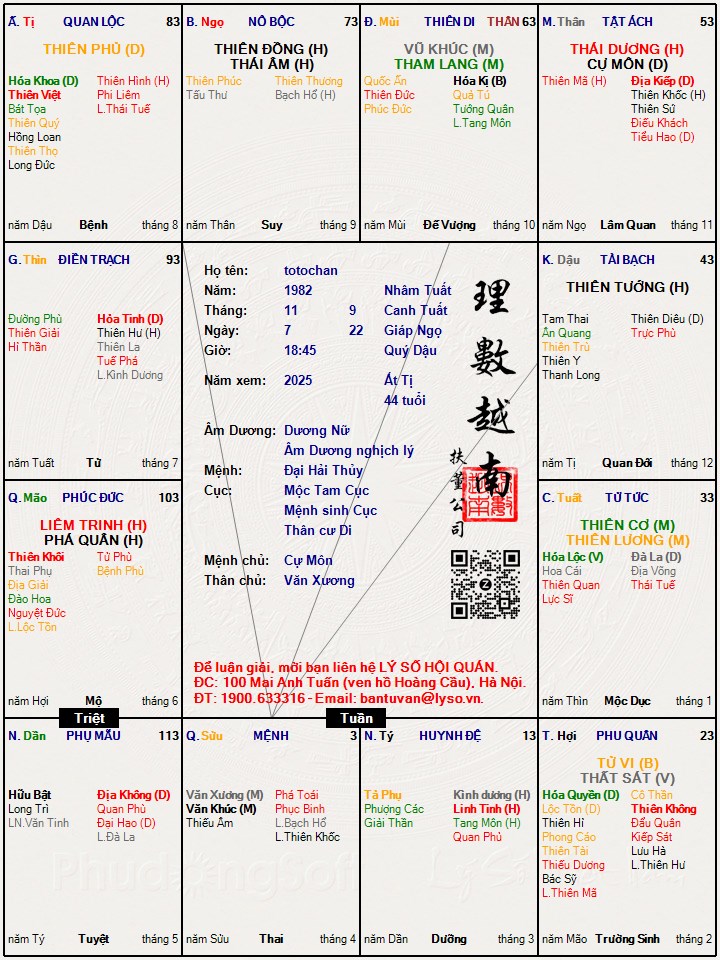 Ấ. Tị QUAN LỘC 83
THIÊN PHỦ (D)
Hóa Khoa (D) Thiên Hình (H)
Thiên Việt Phi Liêm
Bát Tọa L.Thái Tuế
Thiên Quý
Hồng Loan
Thiên Thọ
Long Đức
năm Dậu Bệnh tháng 8
B. Ngọ NÔ BỘC 73
THIÊN ĐỒNG (H)
THÁI ÂM (H)
Thiên Phúc Thiên Thương
Tấu Thư Bạch Hổ (H)
năm Thân Suy tháng 9
Đ. Mùi THIÊN DI THÂN 63
VŨ KHÚC (M)
THAM LANG (M)
Quốc Ấn Hóa Kị (B)
Thiên Đức Quả Tú
Phúc Đức Tướng Quân
L.Tang Môn
năm Mùi Đế Vượng tháng 10
M. Thân TẬT ÁCH 53
THÁI DƯƠNG (H)
CỰ MÔN (D)
Thiên Mã (H) Địa Kiếp (D)
Thiên Khốc (H)
Thiên Sứ
Điếu Khách
Tiểu Hao (D)
năm Ngọ Lâm Quan tháng 11
G. Thìn ĐIỀN TRẠCH 93
Đường Phù Hỏa Tinh (D)
Thiên Giải Thiên Hư (H)
Hỉ Thần Thiên La
Tuế Phá
L.Kình Dương
năm Tuất Tử tháng 7
Họ tên: totochan
Năm: 1982 Nhâm Tuất
Tháng: 11 9 Canh Tuất
Ngày: 7 22 Giáp Ngọ
Giờ: 18:45 Quý Dậu
Năm xem: 2025 Ất Tị
44 tuổi
Âm Dương: Dương Nữ
Âm Dương nghịch lý
Mệnh: Đại Hải Thủy
Cục: Mộc Tam Cục
Mệnh sinh Cục
Thân cư Di
Mệnh chủ: Cự Môn
Thân chủ: Văn Xương
理數越南
扶董公司
Để luận giải, mời bạn liên hệ LÝ SỐ HỘI QUÁN.
ĐC: 100 Mai Anh Tuấn (ven hồ Hoàng Cầu), Hà Nội.
ĐT: 1900.633316 - Email: bantuvan@lyso.vn.
K. Dậu TÀI BẠCH 43
THIÊN TƯỚNG (H)
Tam Thai Thiên Diêu (D)
Ân Quang Trực Phù
Thiên Trù
Thiên Y
Thanh Long
năm Tị Quan Đới tháng 12
Q. Mão PHÚC ĐỨC 103
LIÊM TRINH (H)
PHÁ QUÂN (H)
Thiên Khôi Tử Phù
Thai Phụ Bệnh Phù
Địa Giải
Đào Hoa
Nguyệt Đức
L.Lộc Tồn
năm Hợi Mộ tháng 6
C. Tuất TỬ TỨC 33
THIÊN CƠ (M)
THIÊN LƯƠNG (M)
Hóa Lộc (V) Đà La (D)
Hoa Cái Địa Võng
Thiên Quan Thái Tuế
Lực Sĩ
năm Thìn Mộc Dục tháng 1
Triệt
Tuần
N. Dần PHỤ MẪU 113
Hữu Bật Địa Không (D)
Long Trì Quan Phù
LN.Văn Tinh Đại Hao (D)
L.Đà La
năm Tý Tuyệt tháng 5
Q. Sửu MỆNH 3
Văn Xương (M) Phá Toái
Văn Khúc (M) Phục Binh
Thiếu Âm L.Bạch Hổ
L.Thiên Khốc
năm Sửu Thai tháng 4
N. Tý HUYNH ĐỆ 13
Tả Phụ Kình dương (H)
Phượng Các Linh Tinh (H)
Giải Thần Tang Môn (H)
Quan Phủ
năm Dần Dưỡng tháng 3
T. Hợi PHU QUÂN 23
TỬ VI (B)
THẤT SÁT (V)
Hóa Quyền (D) Cô Thần
Lộc Tồn (D) Thiên Không
Thiên Hỉ Đẩu Quân
Phong Cáo Kiếp Sát
Thiên Tài Lưu Hà
Thiếu Dương L.Thiên Hư
Bác Sỹ
L.Thiên Mã
năm Mão Trường Sinh tháng 2